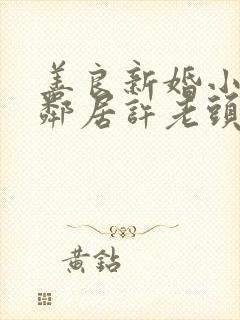 善良新婚小
鄰居許老頭
黃鉆